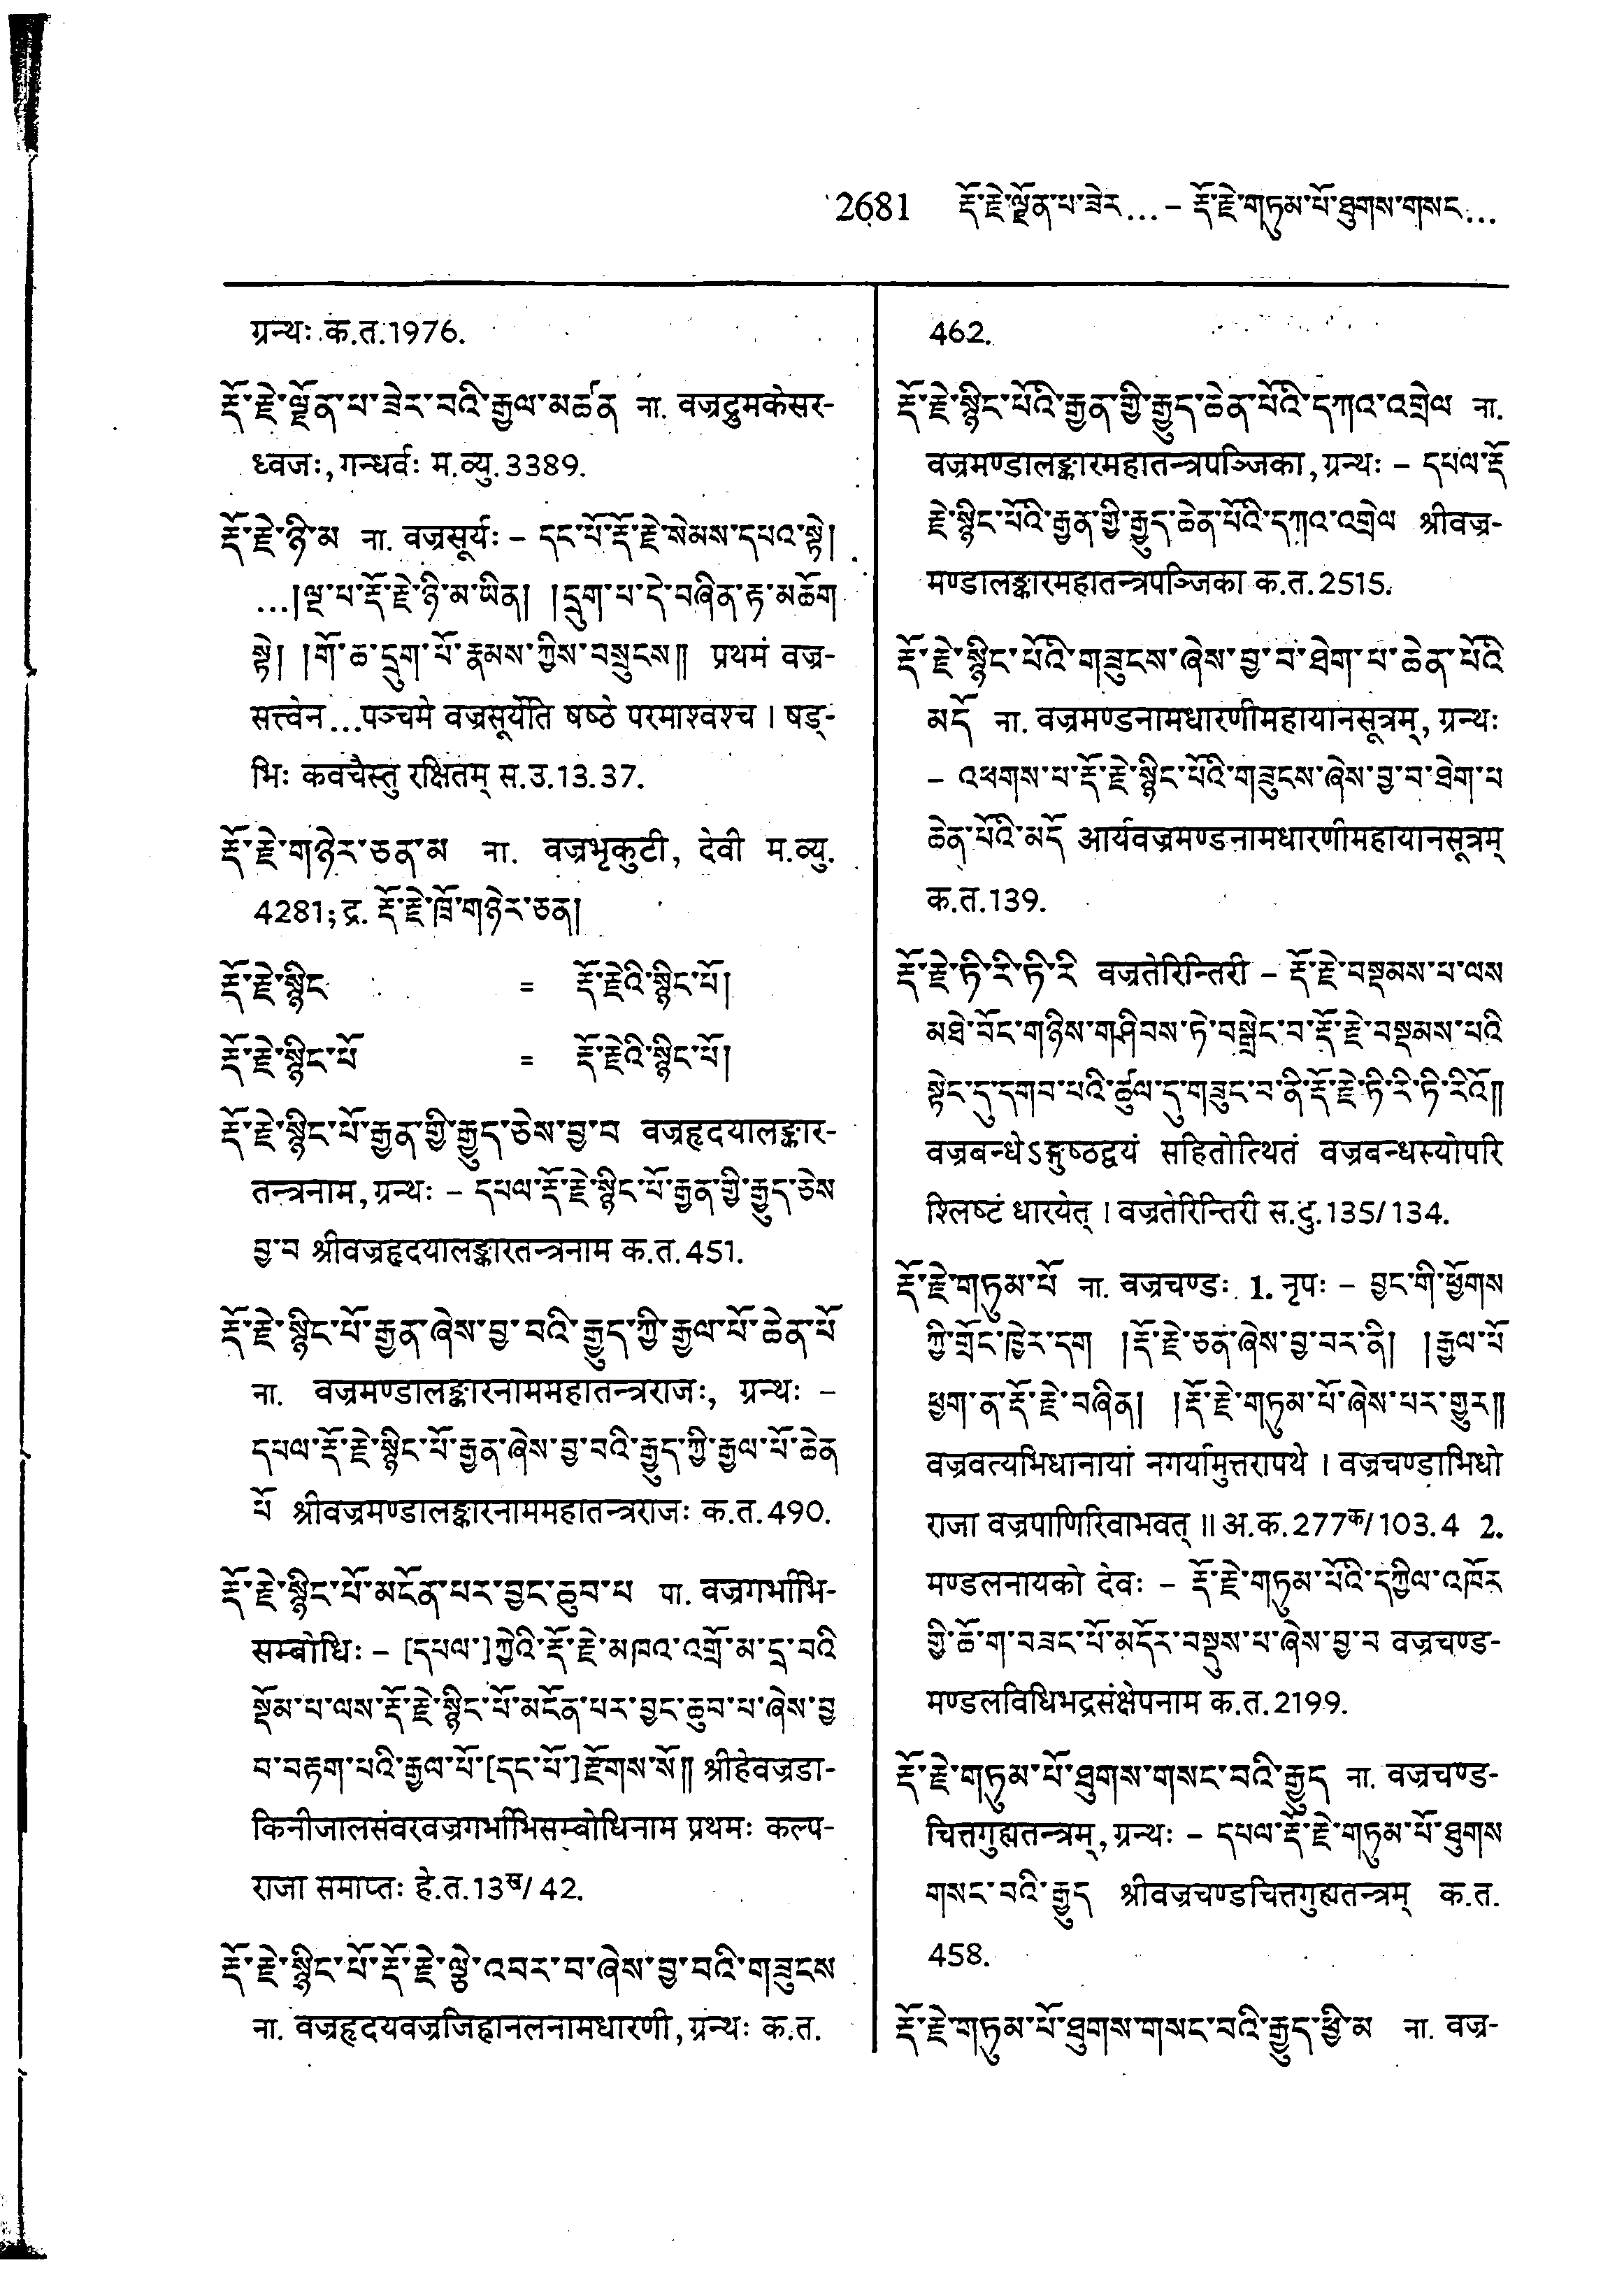 2681 རྡོ་རྗེ་ལྗོན་པ་ཟེར...– རྡོ་རྗེ་གཏུམ་པོ་ཐུགས་གསང...
ग्रन्थः क.त.1976.
རྡོ་རྗེ་ལྗོན་པ་ཟེར་བའི་རྒྱལ་མཚན ना. वज्रद्रुमकेसर-
ध्वजः, गन्धर्वः म.व्यु.3389.
རྡོ་རྗེ་ཉི་མ ना. वज्रसूर्यः – དང་པོ་རྡོ་རྗེ་སེམས་དཔའ་སྟེ།
...།ལྔ་པ་རྡོ་རྗེ་ཉི་མ་ཡིན། །དྲུག་པ་དེ་བཞིན་རྟ་མཆོག
སྟེ། །གོ་ཆ་དྲུག་པོ་རྣམས་ཀྱིས་བསྲུངས༎ प्रथमं वज्र-
सत्त्वेन...पञ्चमे वज्रसूर्येति षष्ठे परमाश्वश्च । षड्-
भिः कवचैस्तु रक्षितम् स.उ.13.37.
རྡོ་རྗེ་གཉེར་ཅན་མ ना. वज्रभृकुटी, देवी म.व्यु.
4281; द्र. རྡོ་རྗེ་ཁྲོ་གཉེར་ཅན།
རྡོ་རྗེ་སྙིང = རྡོ་རྗེའི་སྙིང་པོ།
རྡོ་རྗེ་སྙིང་པོ = རྡོ་རྗེའི་སྙིང་པོ།
རྡོ་རྗེ་སྙིང་པོ་རྒྱན་གྱི་རྒྱུད་ཅེས་བྱ་བ वज्रहृदयालङ्कार-
तन्त्रनाम, ग्रन्थः – དཔལ་རྡོ་རྗེ་སྙིང་པོ་རྒྱན་གྱི་རྒྱུད་ཅེས
བྱ་བ श्रीवज्रहृदयालङ्कारतन्त्रनाम क.त.451.
རྡོ་རྗེ་སྙིང་པོ་རྒྱན་ཞེས་བྱ་བའི་རྒྱུད་ཀྱི་རྒྱལ་པོ་ཆེན་པོ
ना. वज्रमण्डालङ्कारनाममहातन्त्रराजः, ग्रन्थः –
དཔལ་རྡོ་རྗེ་སྙིང་པོ་རྒྱན་ཞེས་བྱ་བའི་རྒྱུད་ཀྱི་རྒྱལ་པོ་ཆེན
པོ श्रीवज्रमण्डालङ्कारनाममहातन्त्रराजः क.त.490.
རྡོ་རྗེ་སྙིང་པོ་མངོན་པར་བྱང་ཆུབ་པ पा. वज्रगर्भाभि-
सम्बोधिः – [དཔལ་]ཀྱེའི་རྡོ་རྗེ་མཁའ་འགྲོ་མ་དྲ་བའི
སྡོམ་པ་ལས་རྡོ་རྗེ་སྙིང་པོ་མངོན་པར་བྱང་ཆུབ་པ་ཞེས་བྱ
བ་བརྟག་པའི་རྒྱལ་པོ་[དང་པོ་]རྫོགས་སོ༎ श्रीहेवज्रडा-
किनीजालसंवरवज्रगर्भाभिसम्बोधिनाम प्रथमः कल्प-
राजा समाप्तः हे.त.13ख/42.
རྡོ་རྗེ་སྙིང་པོ་རྡོ་རྗེ་ལྕེ་འབར་བ་ཞེས་བྱ་བའི་གཟུངས
ना. वज्रहृदयवज्रजिह्वानलनामधारणी, ग्रन्थः क.त.
462.
རྡོ་རྗེ་སྙིང་པོའི་རྒྱན་གྱི་རྒྱུད་ཆེན་པོའི་དཀའ་འགྲེལ ना.
वज्रमण्डालङ्कारमहातन्त्रपञ्जिका, ग्रन्थः – དཔལ་རྡོ
རྗེ་སྙིང་པོའི་རྒྱན་གྱི་རྒྱུད་ཆེན་པོའི་དཀའ་འགྲེལ श्रीवज्र-
मण्डालङ्कारमहातन्त्रपञ्जिका क.त.2515.
རྡོ་རྗེ་སྙིང་པོའི་གཟུངས་ཞེས་བྱ་བ་ཐེག་པ་ཆེན་པོའི
མདོ ना. वज्रमण्डनामधारणीमहायानसूत्रम्, ग्रन्थः
– འཕགས་པ་རྡོ་རྗེ་སྙིང་པོའི་གཟུངས་ཞེས་བྱ་བ་ཐེག་པ
ཆེན་པོའི་མདོ आर्यवज्रमण्डनामधारणीमहायानसूत्रम्
क.त.139.
རྡོ་རྗེ་ཏི་རི་ཏི་རི वज्रतेरिन्तिरी – རྡོ་རྗེ་བསྡམས་པ་ལས
མཐེ་བོང་གཉིས་གཤིབས་ཏེ་བསྒྲེང་བ་རྡོ་རྗེ་བསྡམས་པའི
སྟེང་དུ་དགབ་པའི་ཚུལ་དུ་གཟུང་བ་ནི་རྡོ་རྗེ་ཏི་རི་ཏི་རིའོ༎
वज्रबन्धेऽङ्गुष्ठद्वयं सहितोत्थितं वज्रबन्धस्योपरि
श्लिष्टं धारयेत् । वज्रतेरिन्तिरी स.दु.135/134.
རྡོ་རྗེ་གཏུམ་པོ ना. वज्रचण्डः 1. नृपः – བྱང་གི་ཕྱོགས
ཀྱི་གྲོང་ཁྱེར་དག །རྡོ་རྗེ་ཅན་ཞེས་བྱ་བར་ནི། །རྒྱལ་པོ
ཕྱག་ན་རྡོ་རྗེ་བཞིན། །རྡོ་རྗེ་གཏུམ་པོ་ཞེས་པར་གྱུར༎
वज्रवत्यभिधानायां नगर्यामुत्तरापथे । वज्रचण्डाभिधो
राजा वज्रपाणिरिवाभवत् ॥ अ.क.277क/103.4 2.
मण्डलनायको देवः – རྡོ་རྗེ་གཏུམ་པོའི་དཀྱིལ་འཁོར
གྱི་ཆོ་ག་བཟང་པོ་མདོར་བསྡུས་པ་ཞེས་བྱ་བ वज्रचण्ड-
मण्डलविधिभद्रसंक्षेपनाम क.त.2199.
རྡོ་རྗེ་གཏུམ་པོ་ཐུགས་གསང་བའི་རྒྱུད ना. वज्रचण्ड-
चित्तगुह्यतन्त्रम्, ग्रन्थः – དཔལ་རྡོ་རྗེ་གཏུམ་པོ་ཐུགས
གསང་བའི་རྒྱུད श्रीवज्रचण्डचित्तगुह्यतन्त्रम् क.त.
458.
རྡོ་རྗེ་གཏུམ་པོ་ཐུགས་གསང་བའི་རྒྱུད་ཕྱི་མ ना. वज्र-